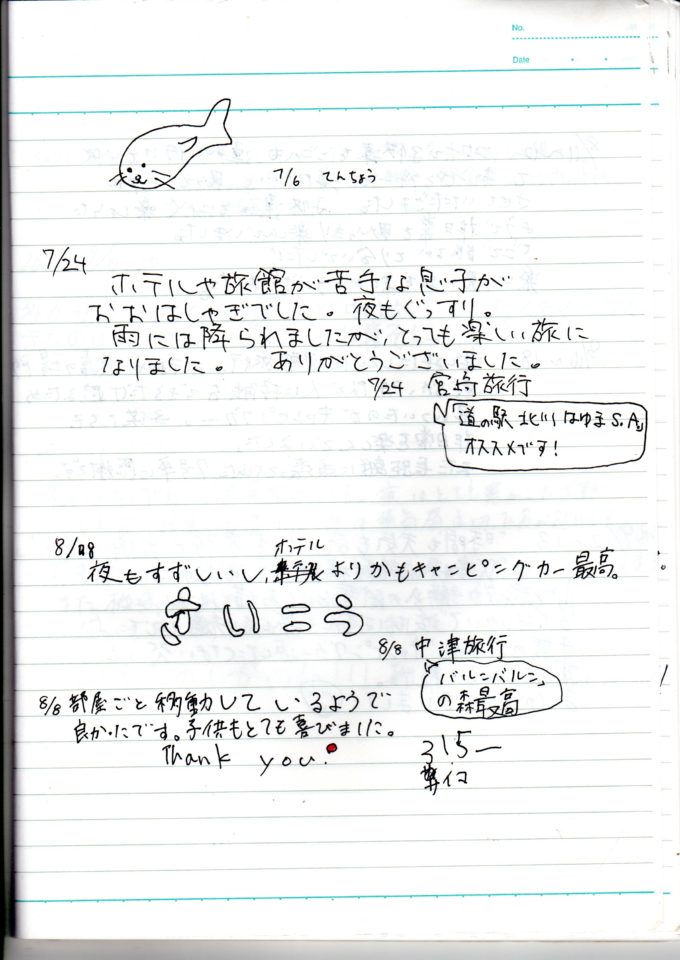 No.
Date
7/6 てんちょう
7/24
ホテルや旅館が苦手な息子が
おおはしゃぎでした。夜もぐっすり。
雨には降られましたが、とっても楽しい旅に
なりました。 ありがとうございました。
7/24 宮崎旅行
「道の駅 北川はゆまS.A」
オススメです!
8/
ホテル
夜もすずしいし、よりかもキャンピングカー最高。
さいこう
8/8 中津旅行
「バルンバルン」
の森最高
8/8 部屋ごと移動しているようで
良かったです。子供もとても喜びました。
Thank you!